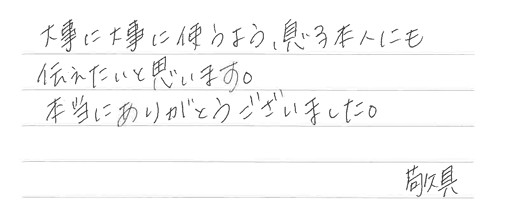 大事に大事に使うよう、息子本人にも
伝えたいと思います。
本当にありがとうございました。
敬具